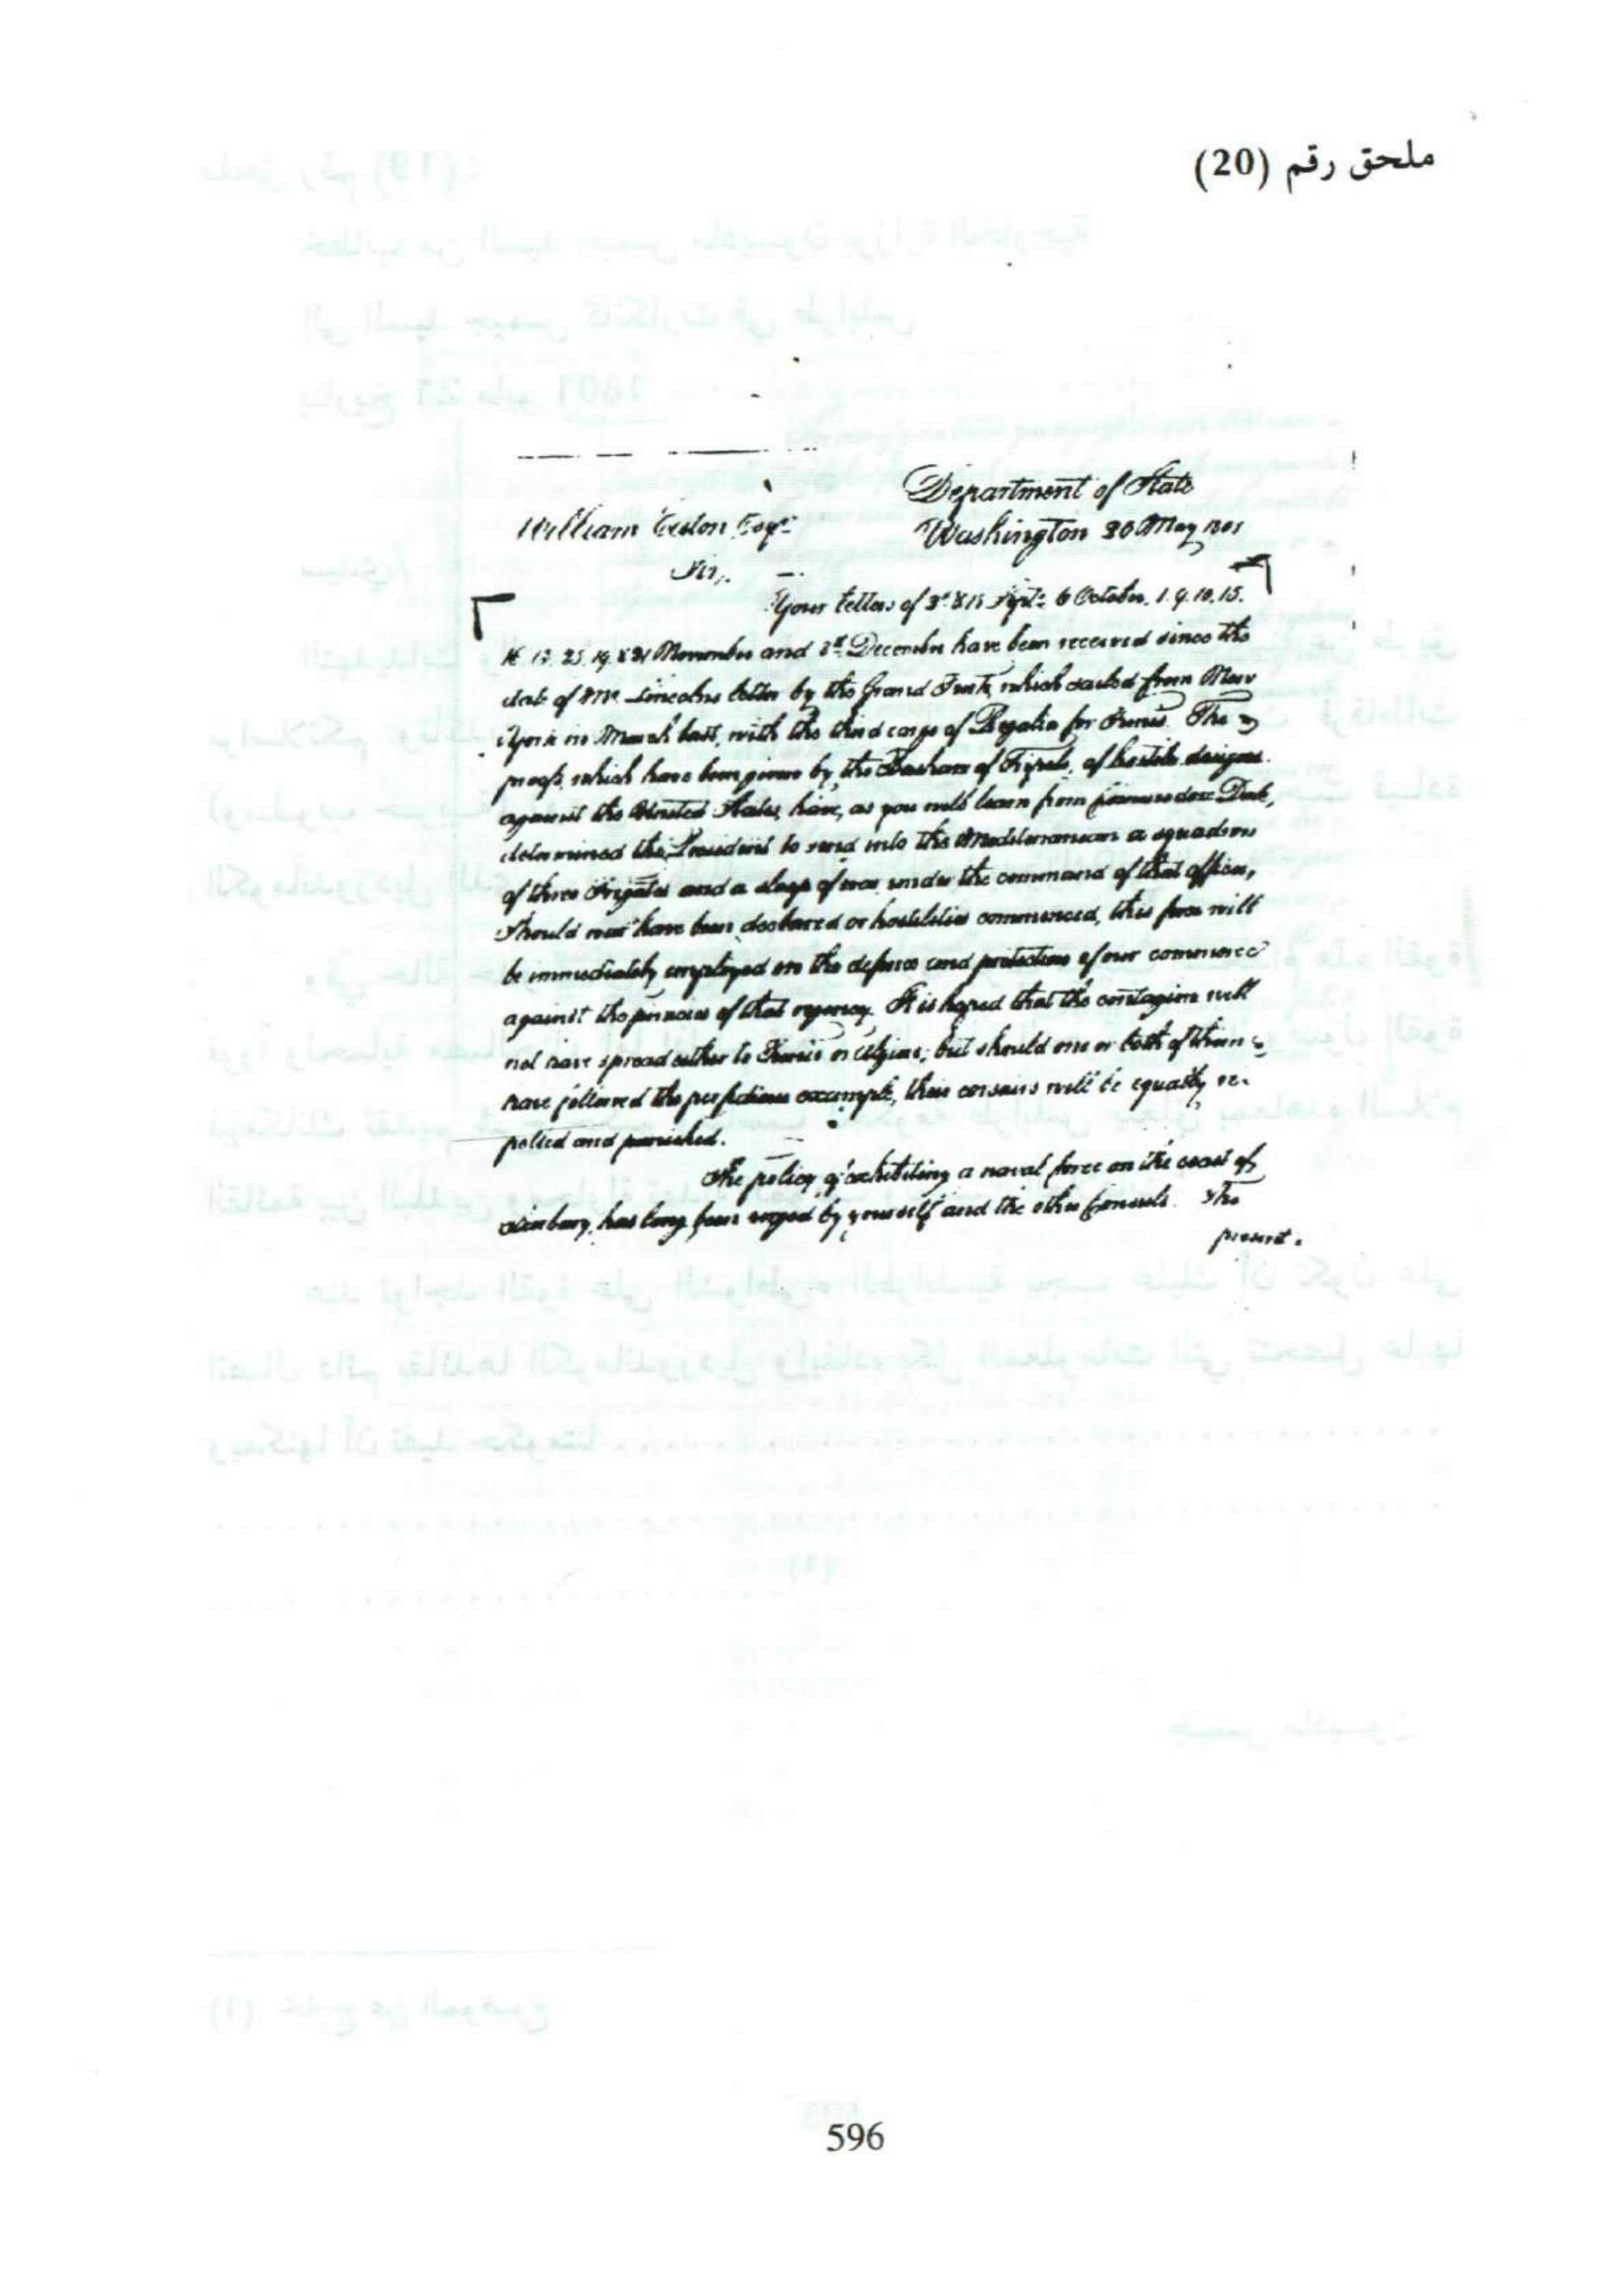 ملحق رقم (20)
Department of State
William Eaton Esqr
Washington 20 May 1801
Sir,
Your letters of Septr 6 October. 1. 9. 10. 15.
November and December have been received since the
date of Mr Lincolns letter by the Grand Turk, which sailed from New
York in March last, with the third cargo of Regalia for Tunis. The
proofs which have been given by the Bashaw of Tripoli, of hostile designs
against the United States, have, as you will learn from Commodore Dale,
determined the President to send into the Mediterranean a squadron
of three Frigates and a sloop of war under the command of that officer,
Should war have been declared or hostilities commenced, this force will
be immediately employed in the defence and protection of our commerce
against the piracies of that regency. It is hoped that the contagion will
not have spread either to Tunis or Algiers; but should one or both of them
have followed the perfidious example, their corsairs will be equally re-
pelled and punished.
The policy of exhibiting a naval force on the coast of
Barbary, has long been urged by yourself and the other Consuls. The
present.
596